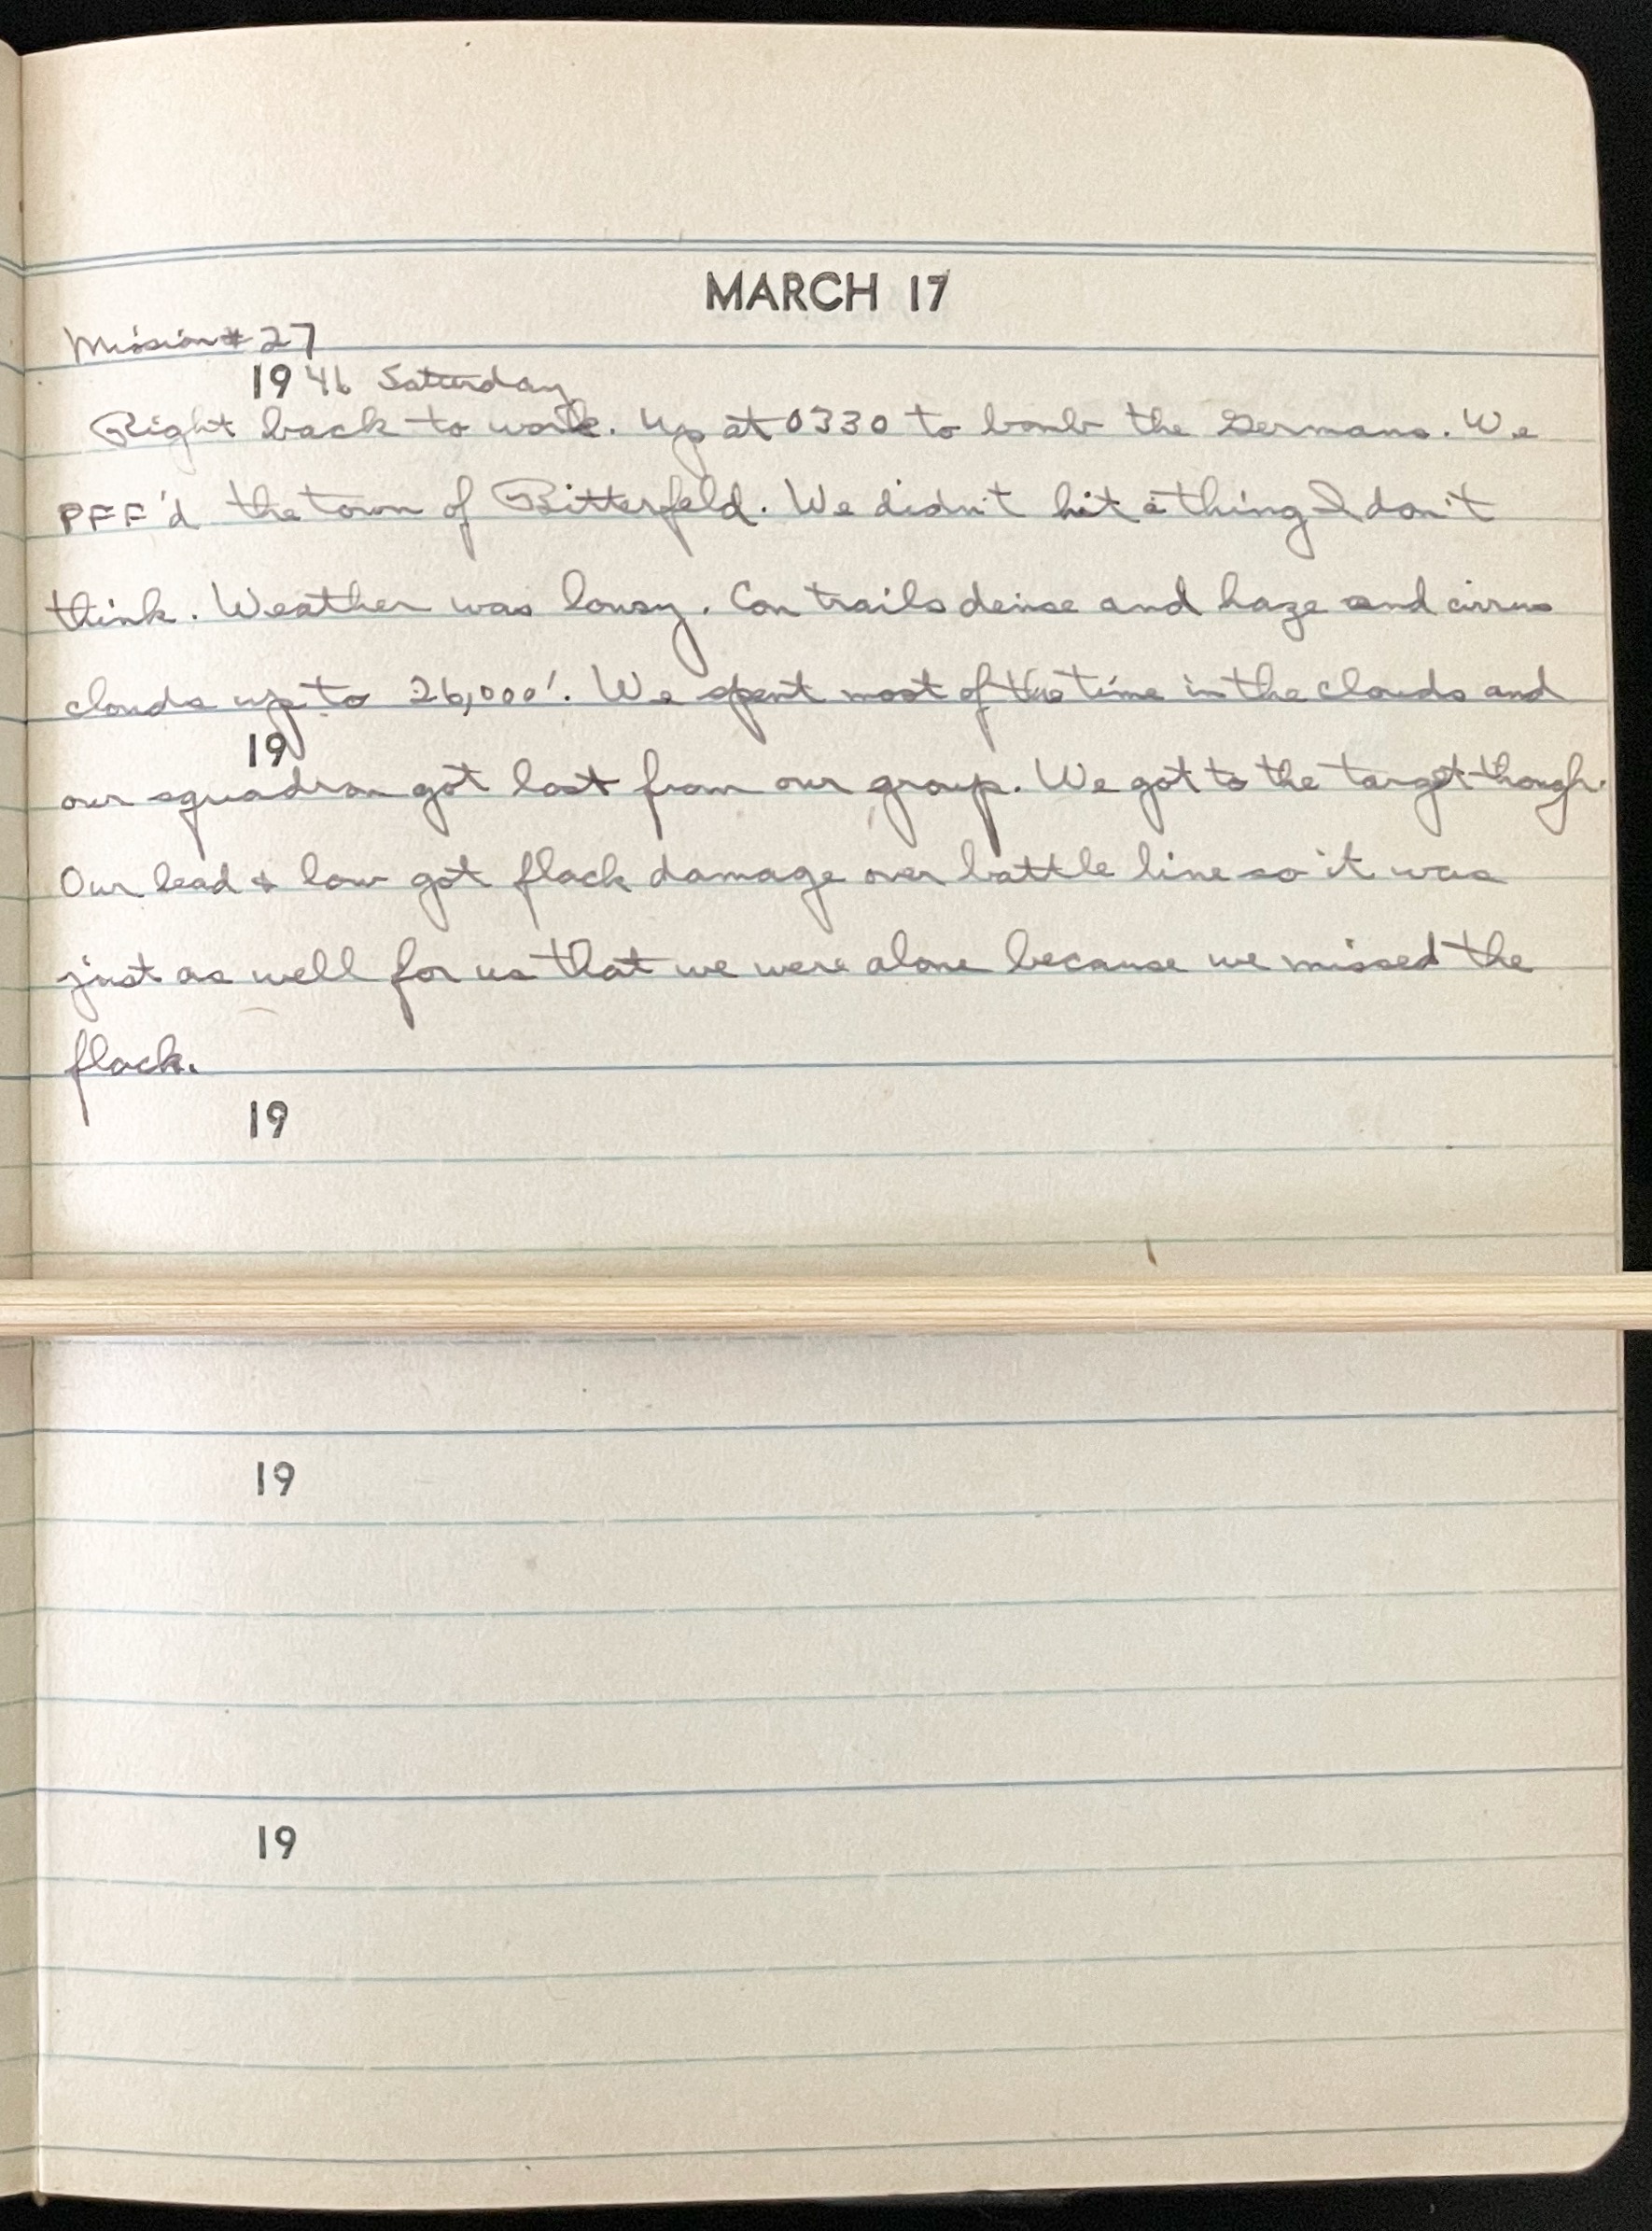 MARCH 17
Mission # 27
1946 Saturday
Right back to work. Up at 0330 to bomb the Germans. We
PFF'd the town of Bitterfeld. We didn't hit a thing I don't
think. Weather was lousy. Con trails dense and haze and cirrus
clouds up to 26,000'. We spent most of the time in the clouds and
19
our squadron got lost from our group. We got to the target though.
Our lead & low got flack damage over battle line so it was
just as well for us that we were alone because we missed the
flack.
19
19
19